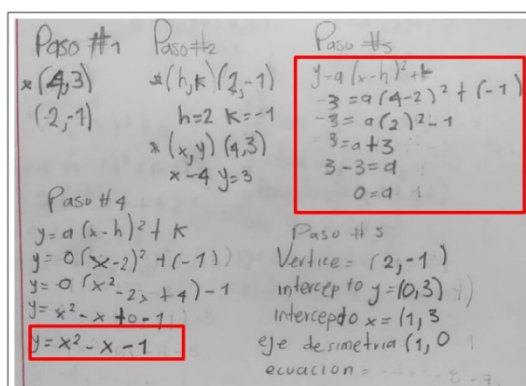 Paso #1
* (4,3)
(-2,-1)
Paso #2
* (h,k) (2,-1)
h=2 k=-1
* (x,y) (4,3)
x-4 y=3
Paso #3
y-a(x-h)²+k
-3=a(4-2)²+(-1)
-3=a(2)²-1
-3=a+3
3-3=a
0=a
Paso #4
y=a(x-h)²+k
y=0(x-2)²+(-1)
y=0(x²-2x+4)-1
y=x²-x+0-1
y=x²-x-1
Paso #5
Vertice=(2,-1)
intercepto y=(0,3)
intercepto x=(1,3
eje de simetria (1,0
ecuacion=